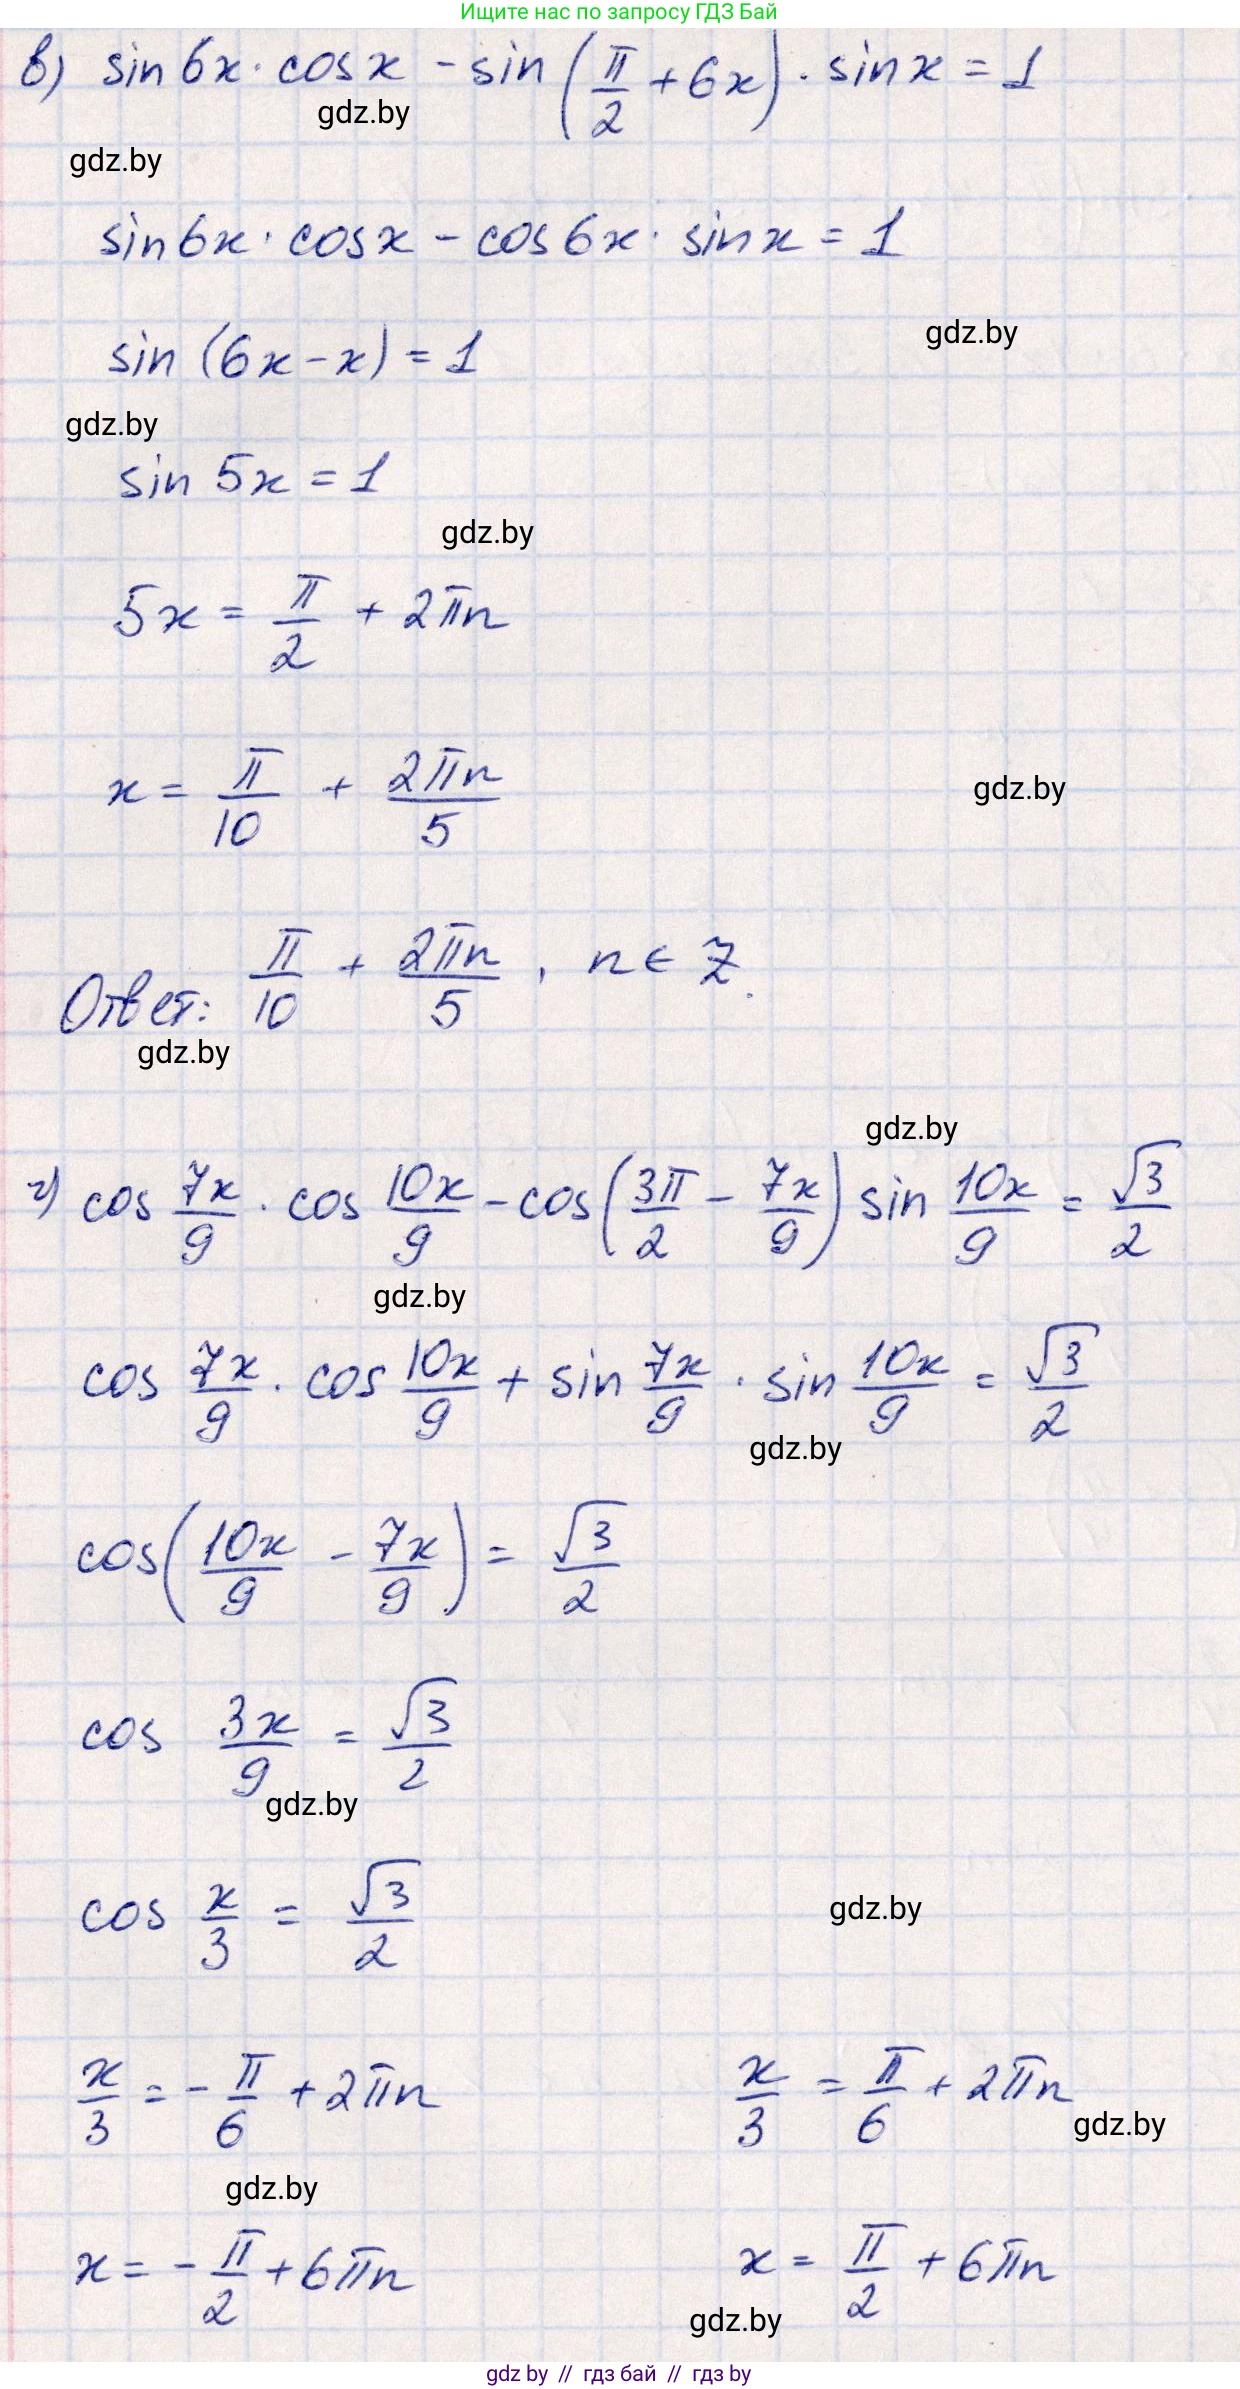 Ищите нас по запросу ГДЗ Бай
в) sin 6x · cos x - sin (π/2 + 6x) · sin x = 1
gdz.by
gdz.by
sin 6x · cos x - cos 6x · sin x = 1
gdz.by
sin (6x - x) = 1
gdz.by
sin 5x = 1
gdz.by
5x = π/2 + 2πn
x = π/10 + 2πn/5
gdz.by
Ответ: π/10 + 2πn/5, n ∈ Z.
gdz.by
gdz.by
г) cos 7x/9 · cos 10x/9 - cos (3π/2 - 7x/9) sin 10x/9 = √3/2
gdz.by
cos 7x/9 · cos 10x/9 + sin 7x/9 · sin 10x/9 = √3/2
gdz.by
cos (10x/9 - 7x/9) = √3/2
cos 3x/9 = √3/2
gdz.by
cos x/3 = √3/2
gdz.by
x/3 = - π/6 + 2πn x/3 = π/6 + 2πn
gdz.by
gdz.by
x = - π/2 + 6πn x = π/2 + 6πn
gdz.by
gdz by // гдз бай // гдз by